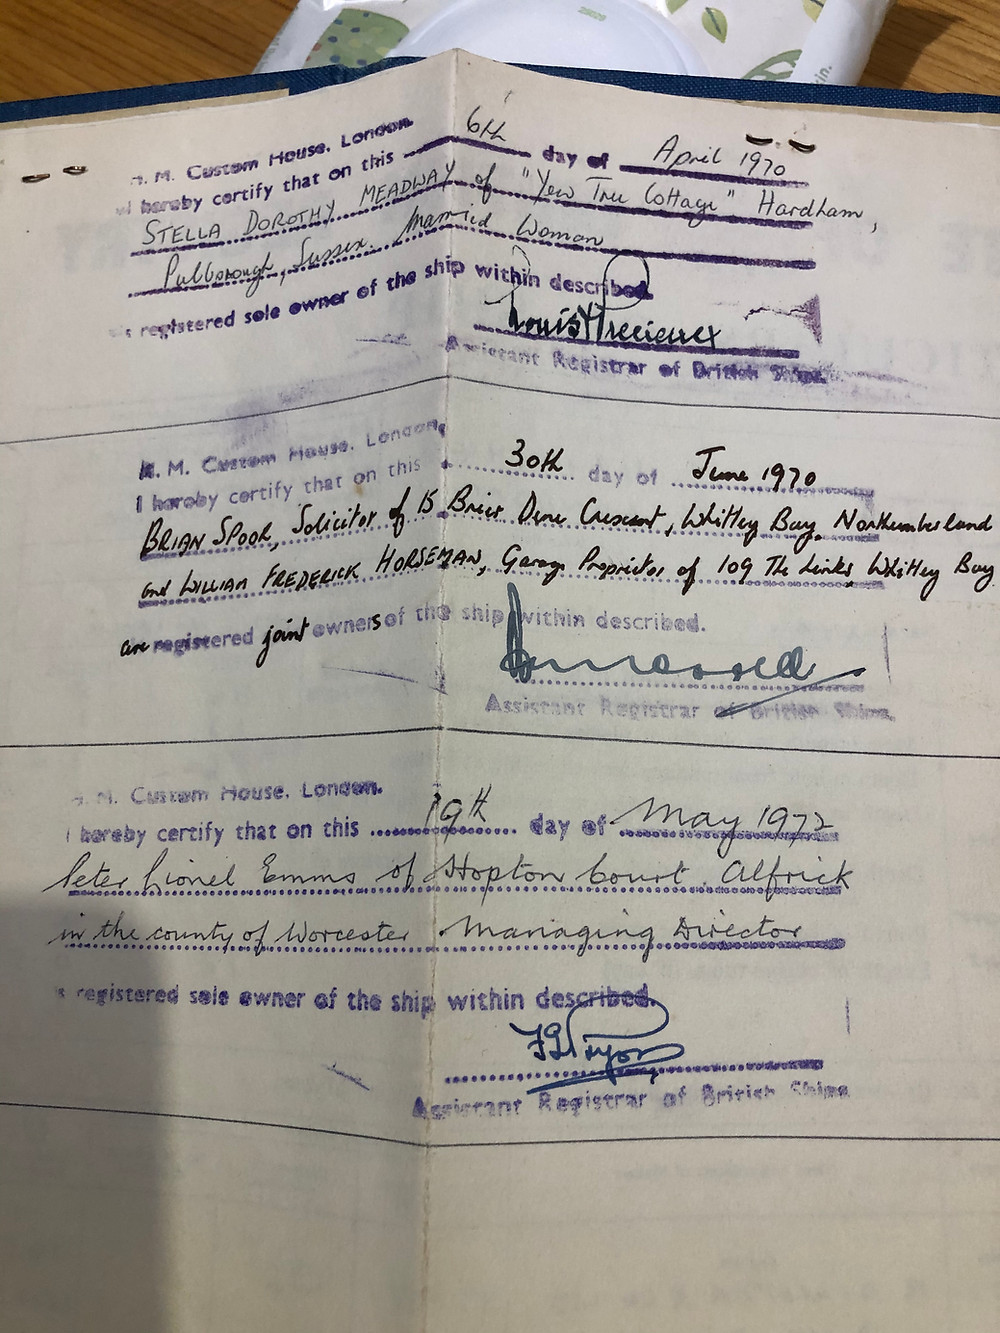 H. M. Custom House. London.
I hereby certify that on this 6th day of April 1970
STELLA DOROTHY MEADWAY of "Yew Tree Cottage" Hardham,
Pulborough, Sussex. Married Woman
is registered sole owner of the ship within described.
Assistant Registrar of British Ships.
H. M. Custom House. London.
I hereby certify that on this 30th day of June 1970
BRIAN SPOOR, Solicitor of 15 Brier Dene Crescent, Whitley Bay, Northumberland
and WILLIAM FREDERICK HORSEMAN, Garage Proprietor of 109 The Links, Whitley Bay
are registered joint owners of the ship within described.
Assistant Registrar of British Ships.
H. M. Custom House. London.
I hereby certify that on this 19th day of May 1972
Peter Lionel Emms of Hopton Court. Alfrick
in the county of Worcester Managing Director
is registered sole owner of the ship within described.
Assistant Registrar of British Ships